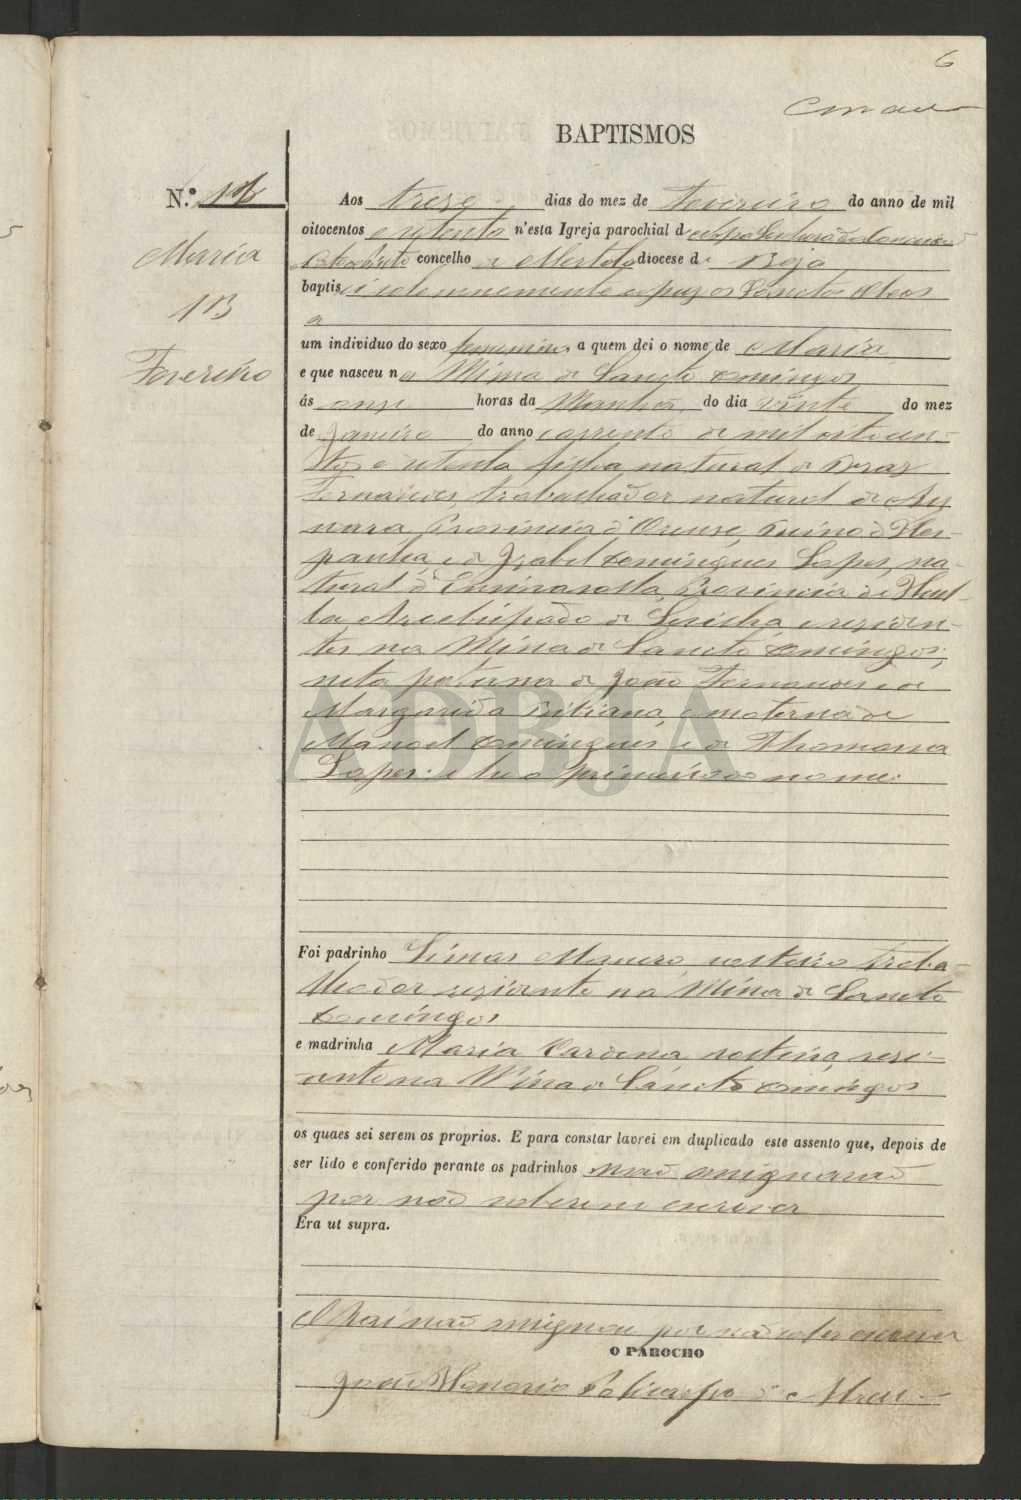 6
BAPTISMOS
N.º
Maria
13
Fevereiro
Aos treze dias do mez de Fevereiro do anno de mil
oitocentos e setenta n'esta Igreja parochial de
concelho de Mertola diocese de Beja
baptisei solemnemente e puz os Sanctos Oleos
a
um individuo do sexo femenino, a quem dei o nome de Maria
e que nasceu na Mina de Sancto Domingos
ás onze horas da Manhã do dia vinte do mez
de Janeiro do anno corrente de mil oitocen-
tos e setenta filha natural de Braz
Fernandes, trabalhador natural de
Provincia d'Orense, Reino d'Hes-
panha, e de Izabel Domingues Lopes, na-
tural de Provincia de Huel-
va Arcebispado de Sevilha, e residen-
tes na Mina de Sancto Domingos;
neta paterna de João Fernandes e de
Margarida e materna de
Manoel Domingues e de Thomasia
Lopes: e he o primeiro do nome.
Foi padrinho solteiro traba-
lhador rezidente na Mina de Sancto
Domingos
e madrinha Maria solteira, rezi-
dente na Mina de Sancto Domingos
os quaes sei serem os proprios. E para constar lavrei em duplicado este assento que, depois de
ser lido e conferido perante os padrinhos não assignarão
por não saberem escrever
Era ut supra.
O Pai não assignou por não saber escrever
O PAROCHO
João Honorio Policarpo d'Abreu
ADBJA